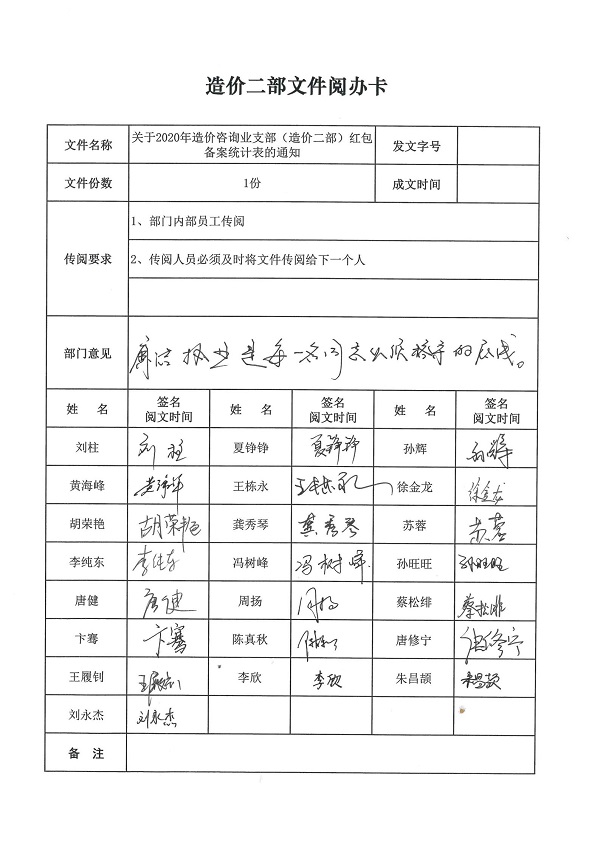 造价二部文件阅办卡
文件名称 关于2020年造价咨询业支部（造价二部）红包 发文字号
备案统计表的通知
文件份数 1份 成文时间
传阅要求 1、部门内部员工传阅
2、传阅人员必须及时将文件传阅给下一个人
部门意见 廉洁执业是每一名同志必须恪守的底线。
姓 名 签名 姓 名 签名 姓 名 签名
阅文时间 阅文时间 阅文时间
刘柱 刘柱 夏铮铮 夏铮铮 孙辉 孙辉
黄海峰 黄海峰 王栋永 王栋永 徐金龙 徐金龙
胡荣艳 胡荣艳 龚秀琴 龚秀琴 苏蓉 苏蓉
李纯东 李纯东 冯树峰 冯树峰 孙旺旺 孙旺旺
唐健 唐健 周扬 周扬 蔡松绯 蔡松绯
卞骞 卞骞 陈真秋 唐修宁 唐修宁
王履钊 李欣 李欣 朱昌颉 朱昌颉
刘永杰 刘永杰
备 注